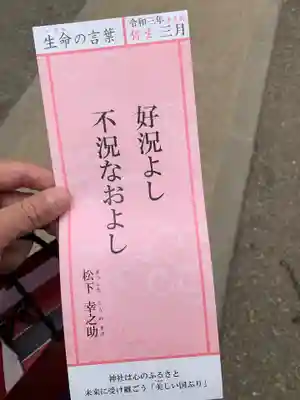 生命の言葉
令和三年 弥生 三月
好況よし
不況なおよし
松下 幸之助
まつした こうのすけ
神社は心のふるさと
未来に受け継ごう「美しい国ぶり」